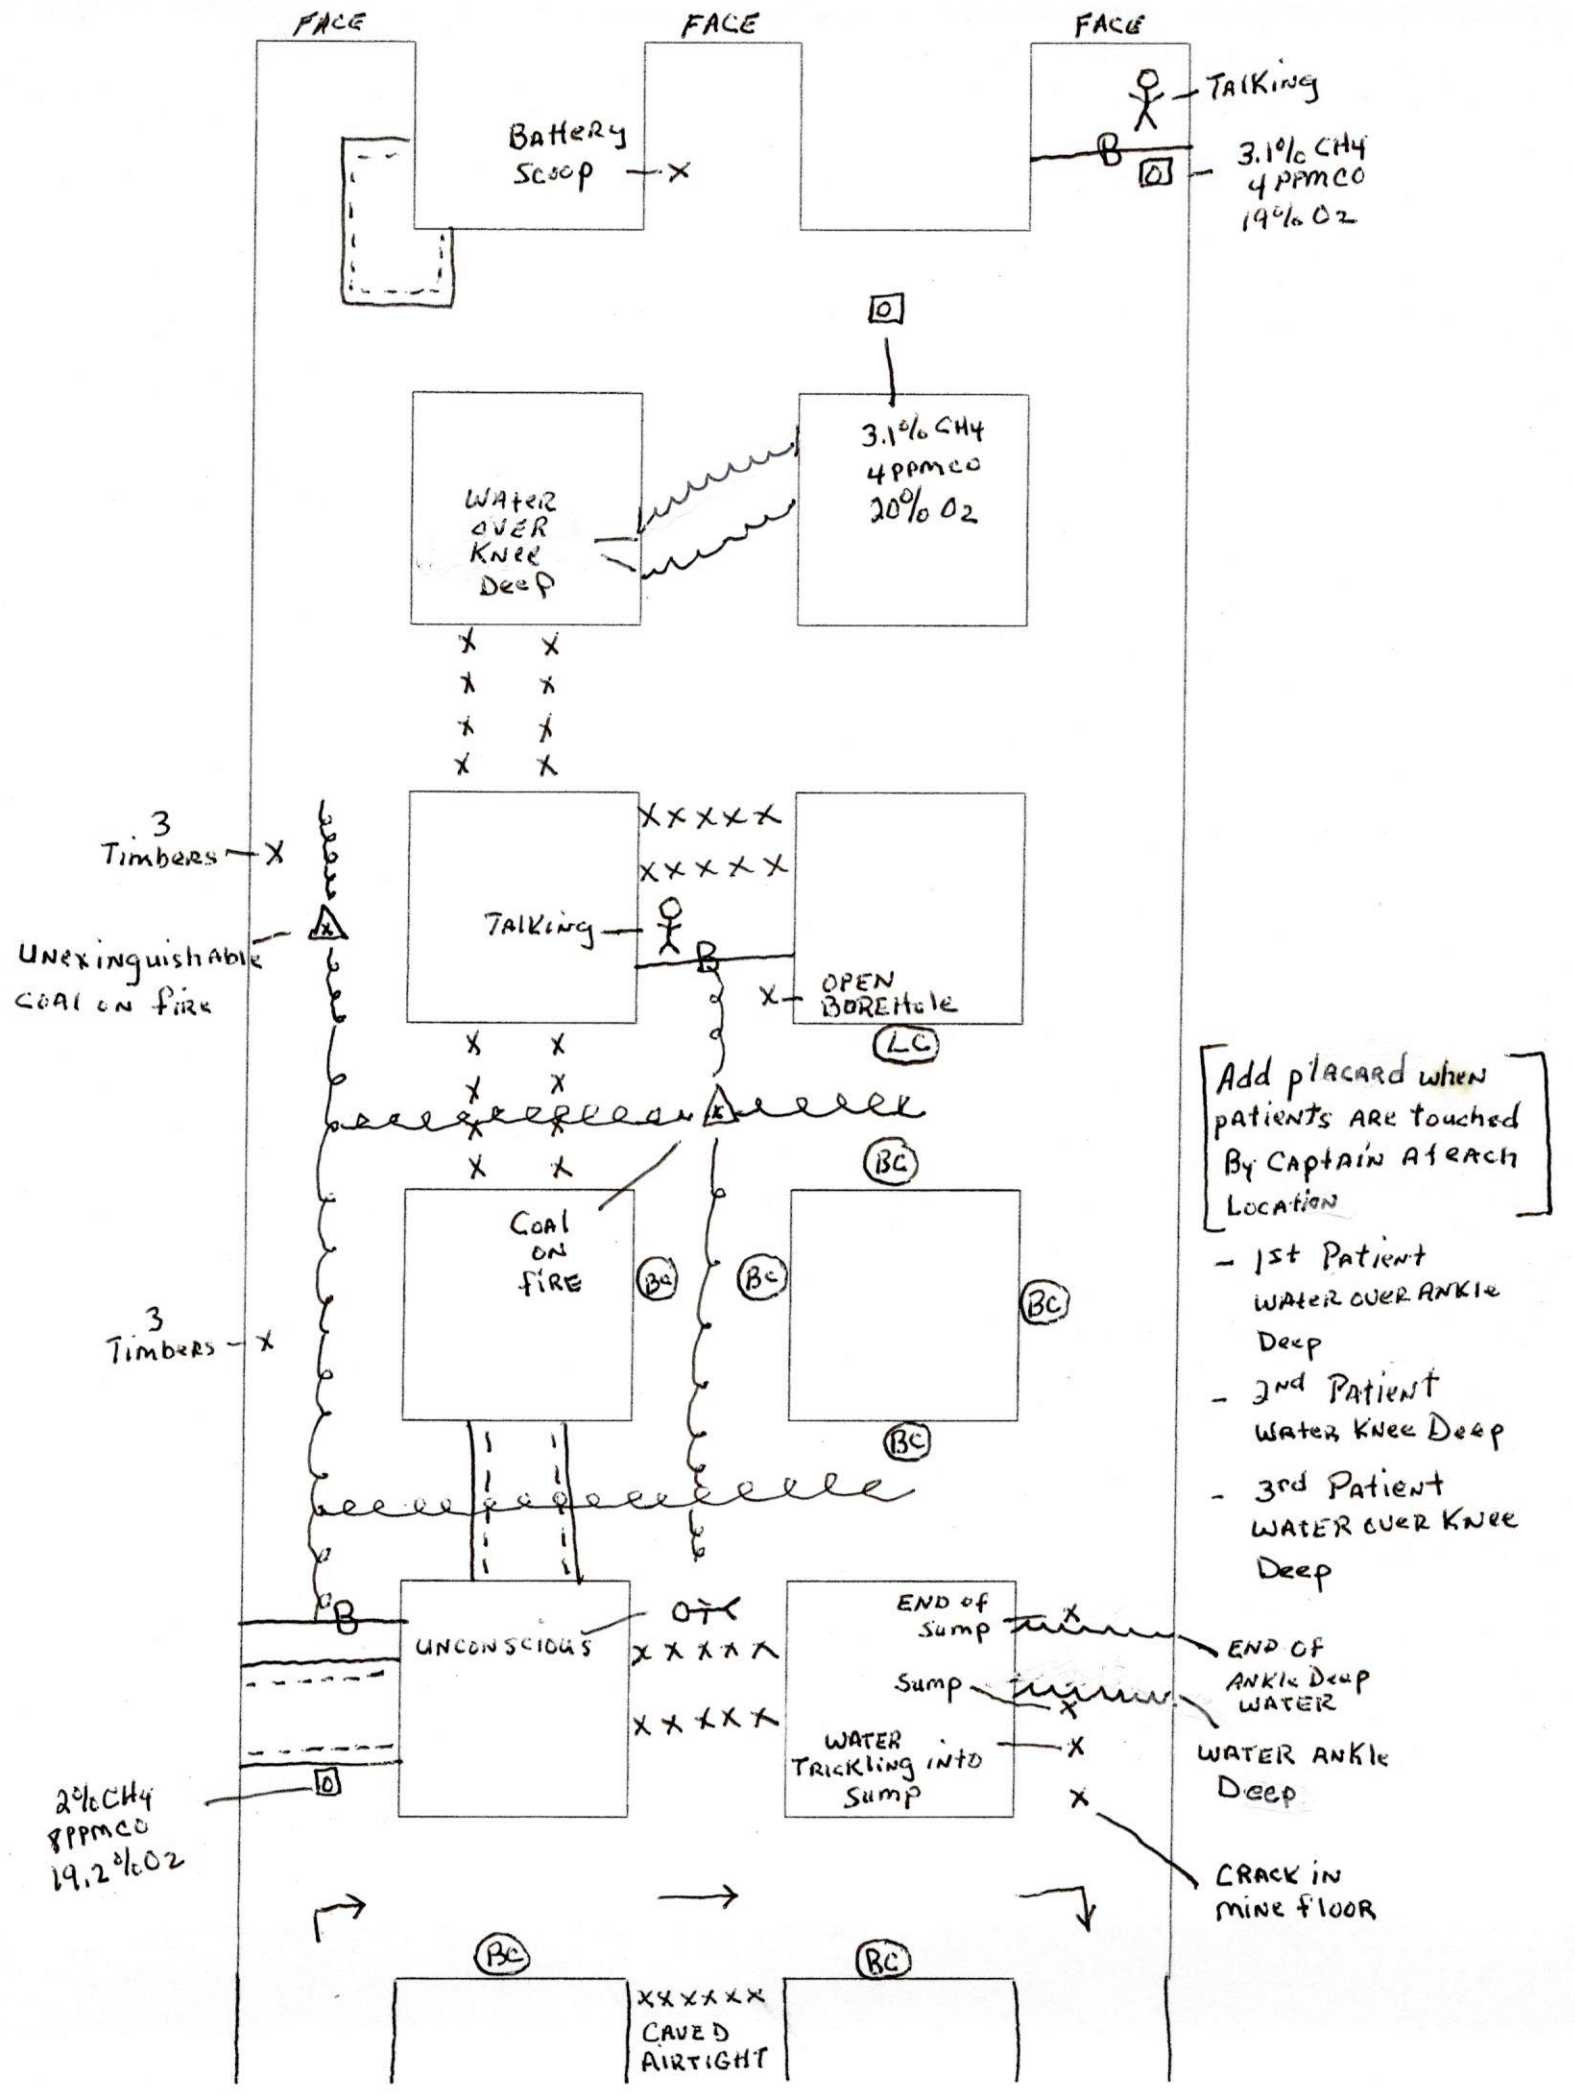 FACE
FACE
FACE
TAlKiNg
BAtteRy
Scoop
X
B
O
3.1% CH4
4 PPMCO
19% O2
O
3.1% CH4
4 PPMCO
20% O2
WAteR
OVER
KNee
Deep
X X
X X
X X
X X
3
TimbeRs
X
X X X X X
X X X X X
TAlKiNg
B
X
UNexinguishAble
COAl ON fiRe
X
OPEN
BOREHole
LC
X X
X X
X X
X X
X
BC
COAl
ON
fiRE
BC
BC
BC
BC
3
TimbeRs
X
Add plACARd wheN
pAtieNTs ARe touched
By CAptAiN At eACh
LocAtioN
- 1st PAtieNt
WAteR OVER ANKle
Deep
- 2Nd PAtieNt
WAteR KNee Deep
- 3Rd PAtieNt
WATER OVER KNee
Deep
B
UNCONSCIOUS
X X X X X
X X X X X
END of
Sump
X
END OF
ANKle Deep
WATER
Sump
X
WATER
TRickliNg iNto
Sump
X
WATER ANKle
Deep
X
CRACK iN
miNe flooR
O
2% CH4
8 PPMCO
19.2% O2
BC
BC
XXXXXX
CAVED
AIRTIGHT